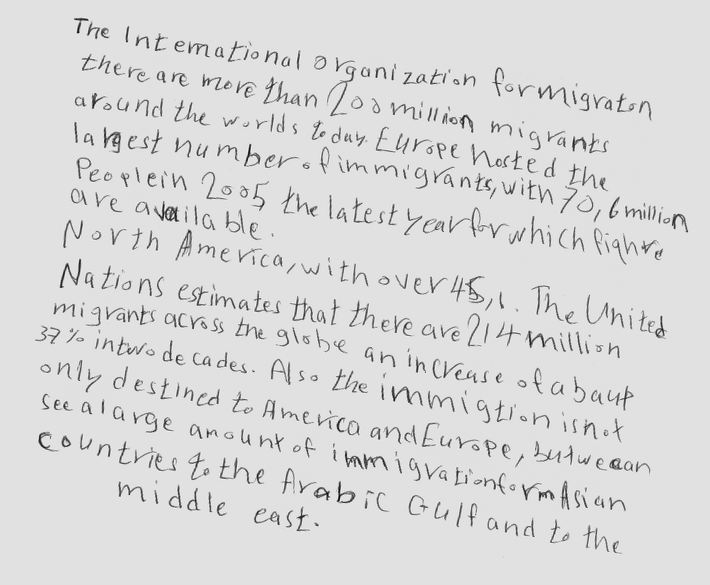 The International organization formigraton
there are more than 200 million migrants
around the worlds today. Europe hosted the
largest number of immigrants, with 70,6 million
Peoplein 2005 the latest year for which fighre
are available.
North America, with over 45,1. The United
Nations estimates that there are 214 million
migrants across the globe an increase of abaut
37% intwo decades. Also the immigtion isnot
only destined to America and Europe, but wecan
see a large amount of immigrationform Asian
countries to the Arabic Gulf and to the
middle east.